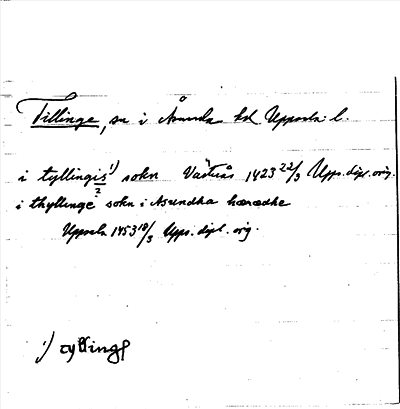 Tillinge, sn i Åsunda hd Uppsala l.
i tyllingis 1) sokn Västerås 1423 22/3 Upps. dipl. orig.
2
i thyllinge sokn i Asundha hæradhe
Uppsala 1453 10/3 Upps. dipl. orig.
1) tylling